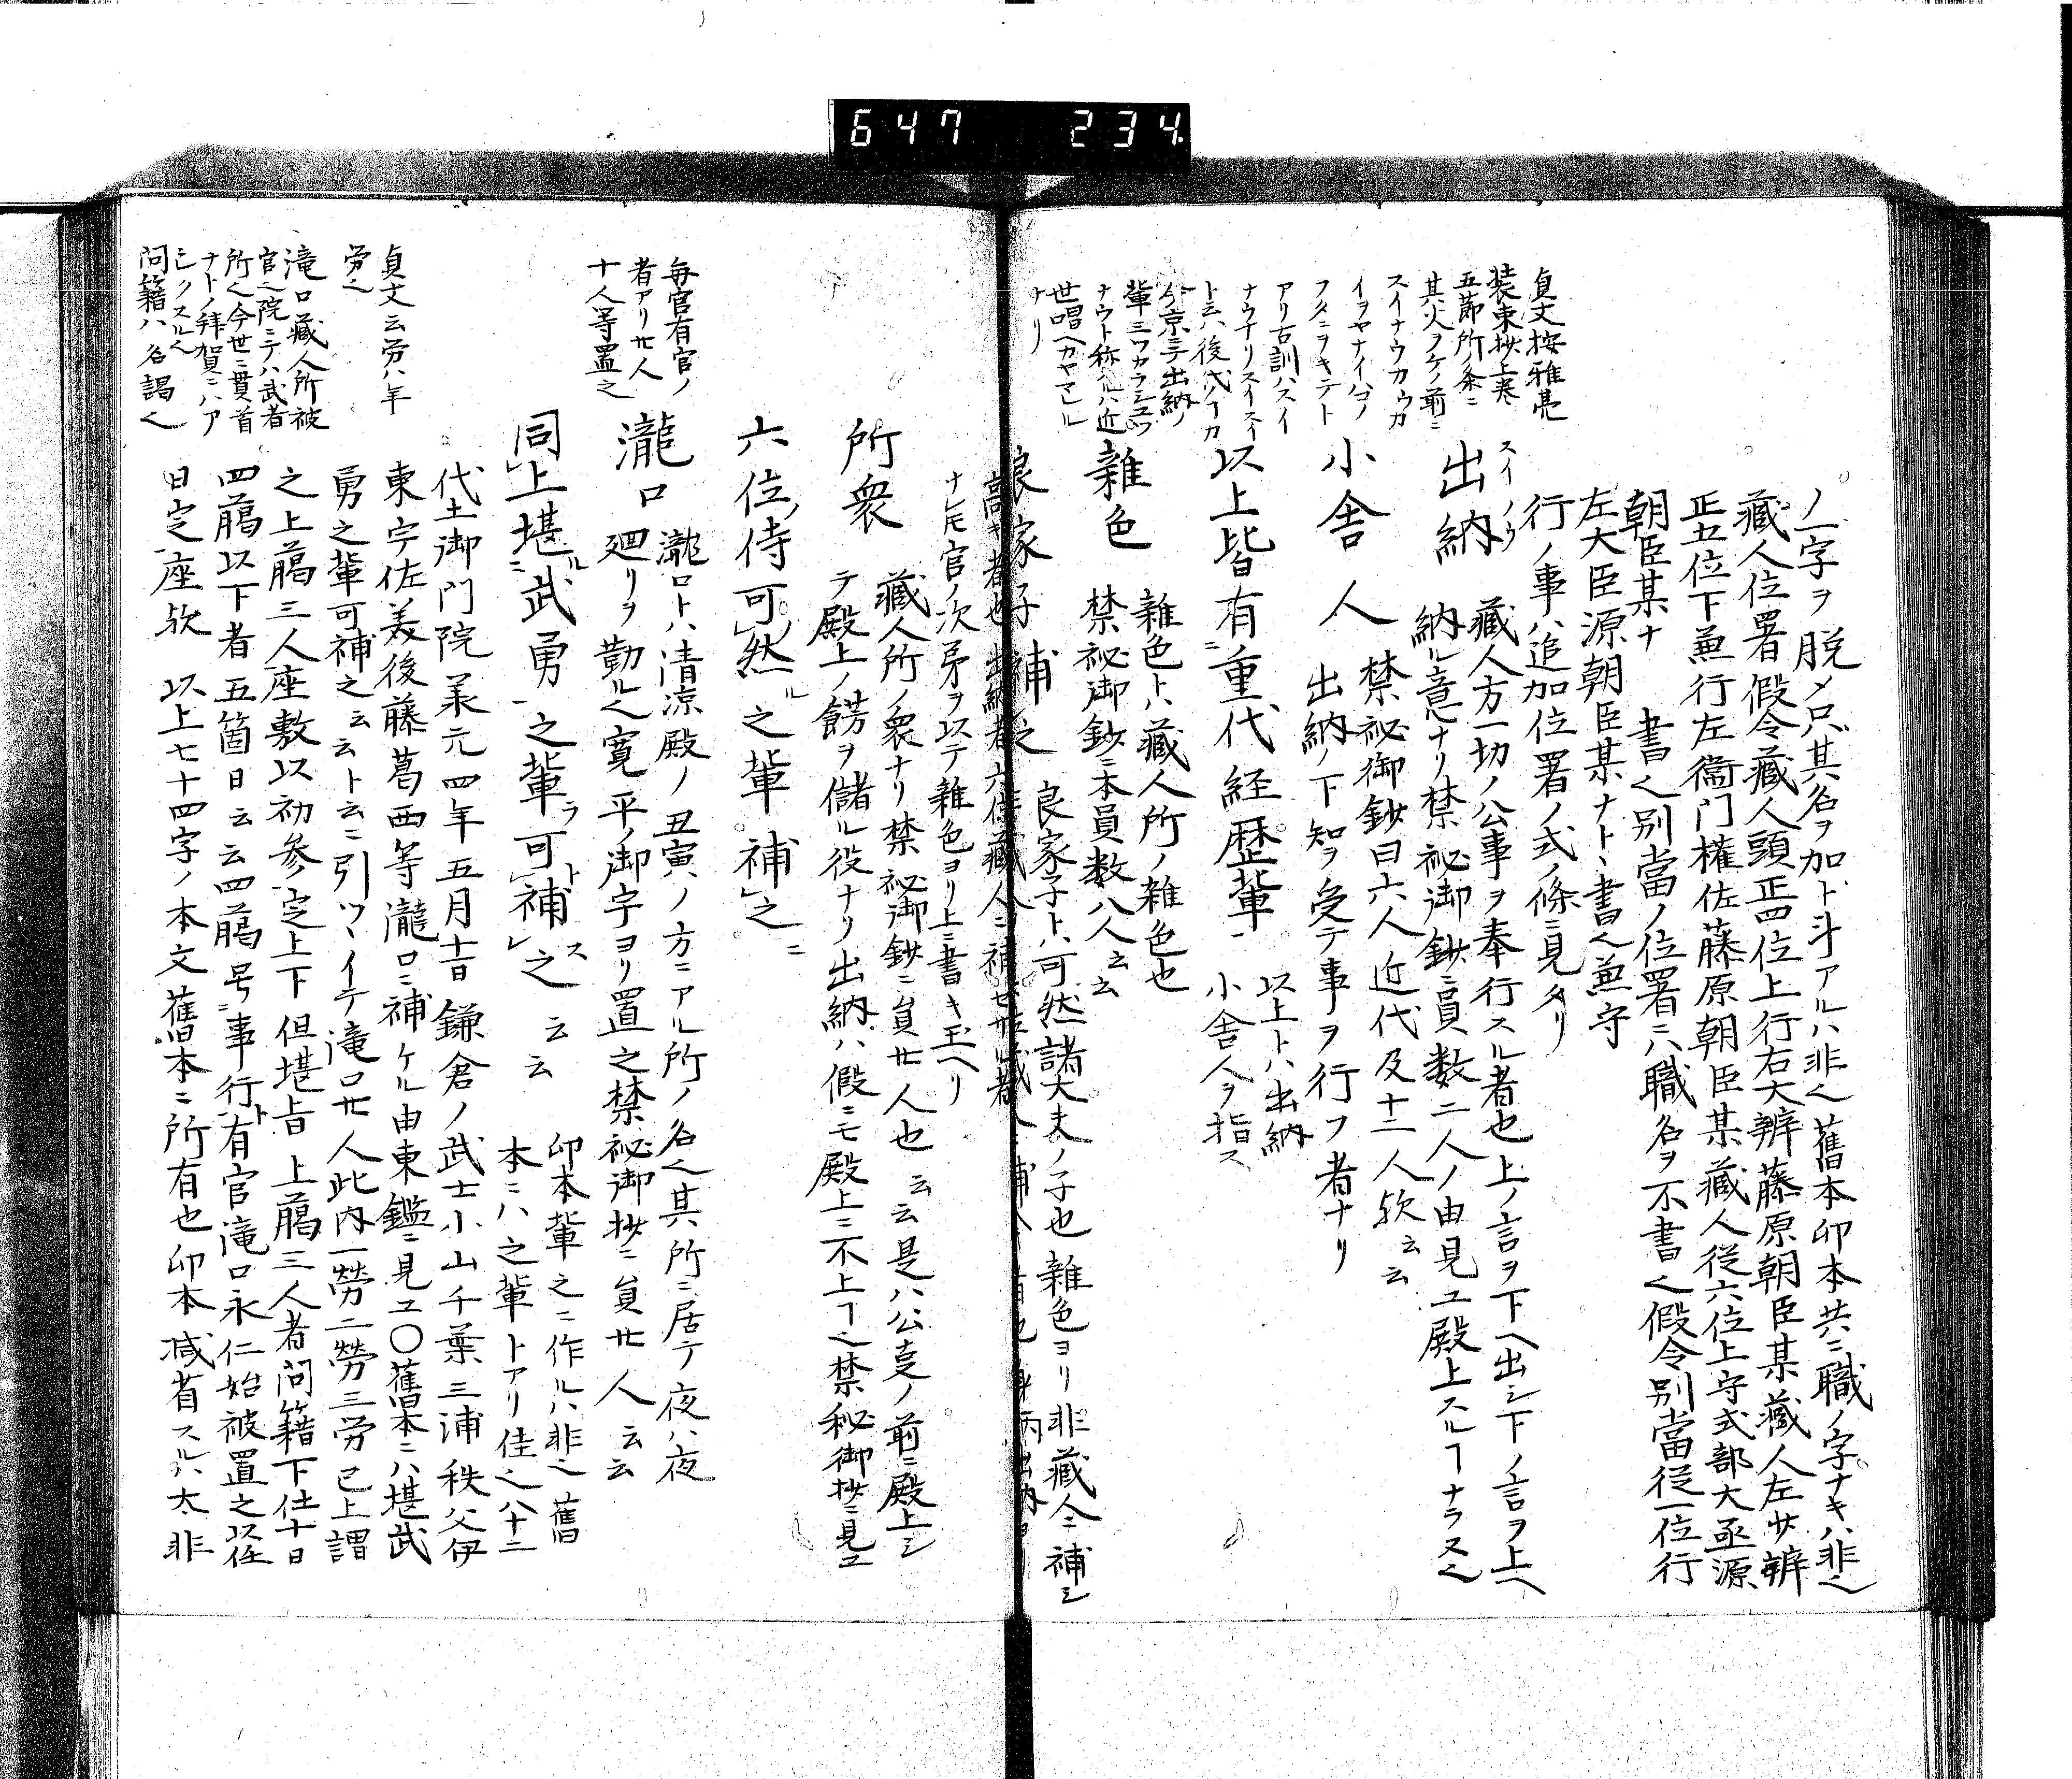 647 234
貞丈按雅亮
装束抄上巻
五節所ノ条ニ
其火ヲケノ前ニ
スイナウカウカ
イヲヤナイハコノ
フタニヲキテト
アリ古訓ハスイ
ナウナリスイスイ
ト云ハ後代ノヿカ
今京ニテ出納ノ
輩ミワカラシユツ
ナウト称ルハ近
世唱ヘカヤマレル
ナリ
ノ一字ヲ脱メ只其名ヲ加ト斗アルハ非也舊本印本共ニ職ノ字ナキハ非也
藏人位署假令藏人頭正四位上行右大辨藤原朝臣某藏人左少辨
正五位下兼行左衞门權佐藤原朝臣某藏人従六位上守式部大丞源
朝臣某ナ 書也別當ノ位署ニハ職名ヲ不書也假令别當従一位行
左大臣源朝臣某ナト丶書也兼守
行ノ事ハ追加位署ノ式ノ條ニ見タリ
出納 藏人方一切ノ公事ヲ奉行スル者也上ノ言ヲ下ヘ出シ下ノ言ヲ上ヘ
スイノウ
納ル意ナリ禁祕御鈔ニ員数二人ノ由見ユ殿上スルヿナラス又也
小舎人 禁祕御鈔曰六人近代及十二人欤云云
出納ノ下知ヲ受テ事ヲ行フ者ナリ
以上皆有重代経歴輩 以上トハ出納
小舎人ヲ指ス
雜色 雜色トハ藏人所ノ雜色也
禁祕御鈔ニ本員数八人云云
良家子補之 良家子トハ可然諸大夫ノ子也雜色ヨリ非藏人ニ補シ
高キ者也
ナレ𪜈官ノ次第ヲ以テ雜色ヨリ上ニ書キ玉ヘリ
毎官有官ノ
者アリ廿人
十人等置之
所衆 藏人所ノ衆ナリ禁祕御鈔ニ員廿人也云云是ハ公事ノ前ニ殿上シ
テ殿上ノ餝ヲ儲ル役ナリ出納ハ假ニモ殿上ニ不上ヿ也禁秘御抄ニ見ユ
六位侍可然之輩補之
瀧口 瀧口トハ清凉殿ノ丑寅ノ方ニアル所ノ名也其所ニ居テ夜ハ夜
廻リヲ勤ル也寛平ノ御宇ヨリ置之禁祕御抄ニ員廿人云云
同上堪武勇之輩可補之云云 印本輩之ニ作ルハ非也舊
本ニハ之輩トアリ佳也八十二
代土御门院美元四年五月十一日鎌倉ノ武士小山千葉三浦秩父伊
東宇佐美後藤葛西等瀧口ニ補ケル由東鑑ニ見ユ〇舊本ニハ堪武
勇之輩可補之云云ト云ニ引ツヽイテ滝口廿人此内一勞二勞三労已上謂
之上﨟三人座敷以初参定上下但堪旨上﨟三人者问籍下仕十日
四﨟以下者五箇日云云四﨟号事行有官滝口永仁始被置之以任
日定座欤 以上七十四字ノ本文舊本ニ所有也印本減省スルハ太非
貞丈云労ハ年
労也
滝口藏人所被
官也院ニテハ武者
所也今世ニ貫首
ナトノ拜賀ニハア
ラシクスル也
问籍ハ名謁也